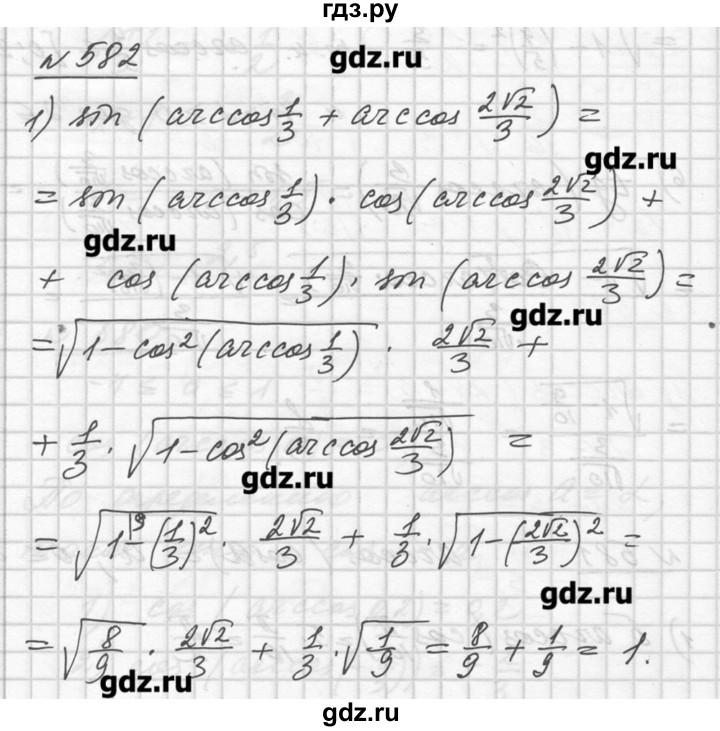 гдз.ру
№ 582
gdz.ru
1) sin (arccos 1/3 + arccos 2√2/3) =
gdz.ru
= sin (arccos 1/3) · cos (arccos 2√2/3) +
gdz.ru
+ cos (arccos 1/3) · sin (arccos 2√2/3) =
gdz.ru
= √(1 - cos²(arccos 1/3)) · 2√2/3 +
+ 1/3 · √(1 - cos²(arccos 2√2/3)) =
gdz.ru
= √(1 - (1/3)²) · 2√2/3 + 1/3 · √(1 - (2√2/3)²) =
gdz.ru
= √(8/9) · 2√2/3 + 1/3 · √(1/9) = 8/9 + 1/9 = 1.
gdz.ru
gdz.ru